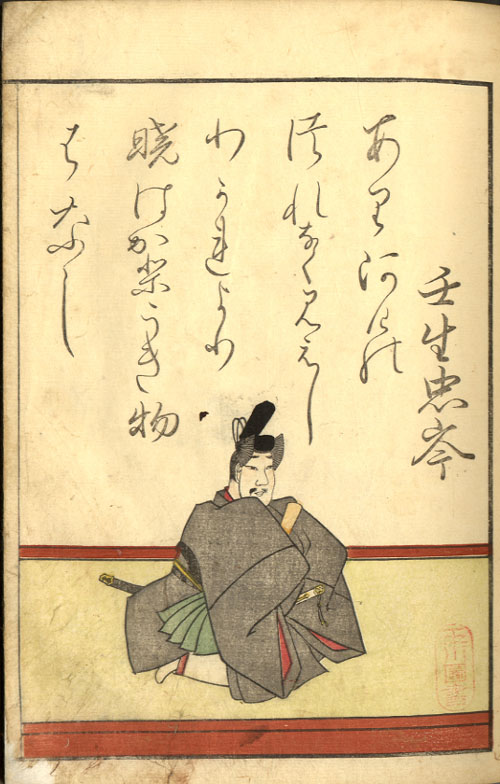 壬生忠岑
ありあけの
つれなくみえし
わかれより
暁はかりうき物
はなし